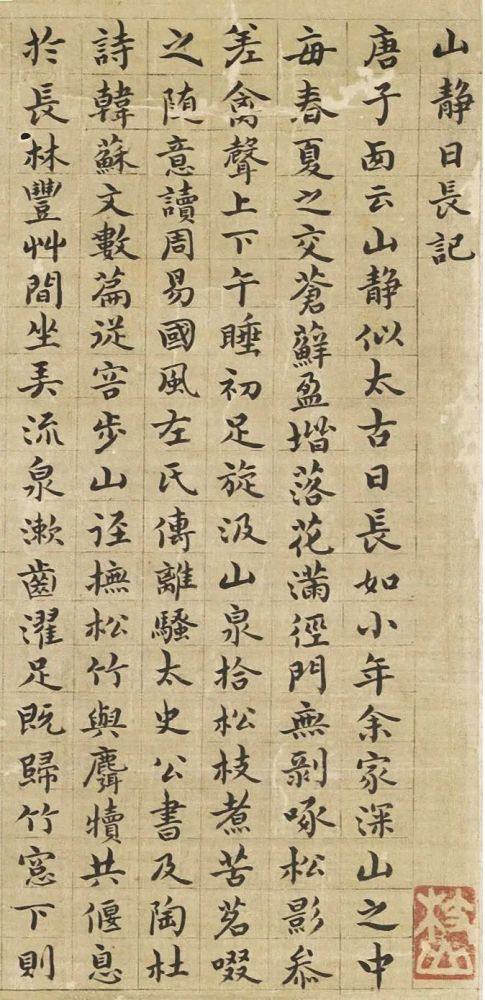 山靜日長記
唐子西云山靜似太古日長如小年余家深山之中
每春夏之交蒼蘚盈堦落花滿徑門無剝啄松影叅
差禽聲上下午睡初足旋汲山泉拾松枝煮苦茗啜
之随意讀周易國風左氏傳離騷太史公書及陶杜
詩韓蘇文數篇從容步山徑撫松竹與麛犢共偃息
於長林豐艸間坐弄流泉漱齒濯足既歸竹窓下則